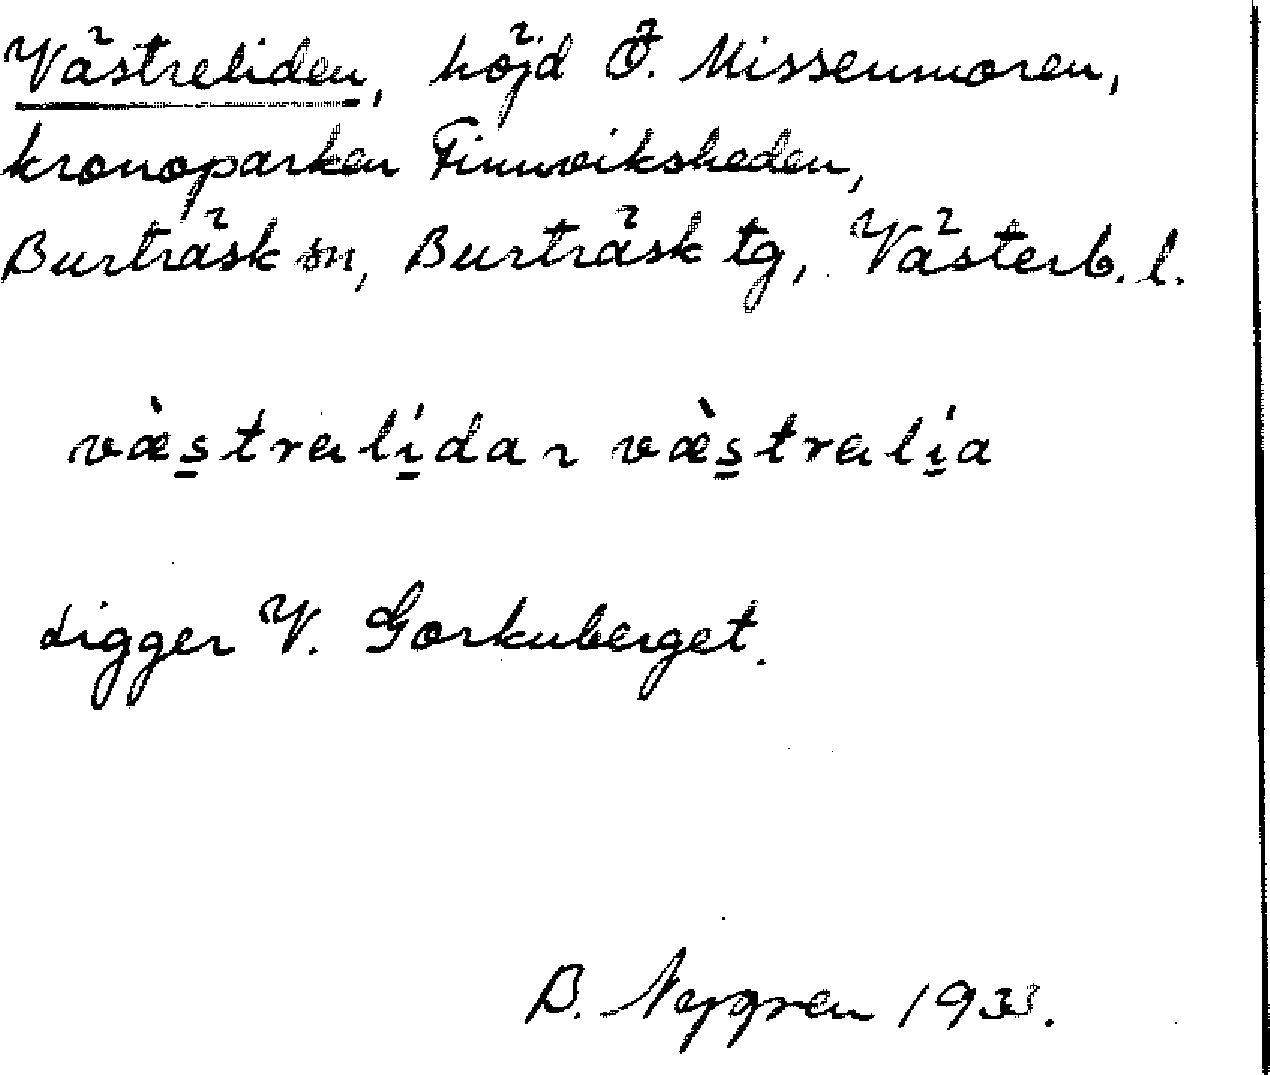 Västreliden, höjd Ö. Missenmoren,
kronoparken Finnviksheden,
Burträsk sn, Burträsk tg, Västerb. l.
væ̀s̲tralí̲da ɿ væ̀s̲tralí̲a
ligger V. Gorkuberget.
B. Nygren 1933.